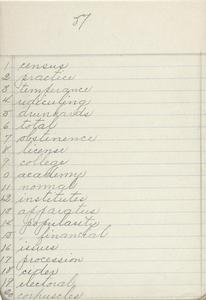 57
1 census
2 practice
3 temperance
4 ridiculing
5 drunkards
6 total
7 abstenence
8 license
9 college
0 academy
11 normal
12 institutes
13 apparatus
14 popularity
15 financial
16 issues
17 procession
18 cider
19 electoral
corpuscles